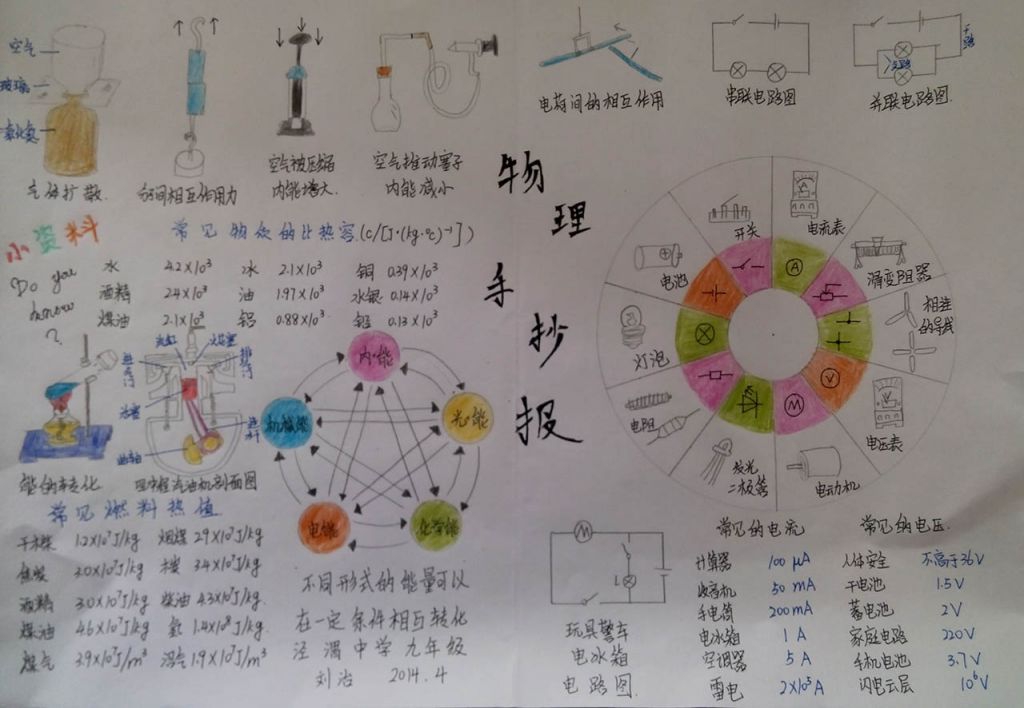 空气
玻璃
气体扩散
分间相互作用力
空气被压缩
内能增大
空气推动塞子
内能减小
电荷间的相互作用
串联电路图
并联电路图
干路
支路
物理手抄报
小资料
常见物质的比热容(c/[J·(kg·℃)⁻¹])
Do you
know
?
水 4.2×10³ 冰 2.1×10³ 铜 0.39×10³
酒精 2.4×10³ 油 1.97×10³ 水银 0.14×10³
煤油 2.1×10³ 铝 0.88×10³ 铅 0.13×10³
火花塞
活塞
连杆
曲轴
能的转化
四冲程汽油机剖面图
内能
机械能
光能
电能
化学能
不同形式的能量可以
在一定条件相互转化
泾渭中学九年级
刘治 2014.4
常见燃料热值
干木柴 1.2×10⁷J/kg 烟煤 2.9×10⁷J/kg
焦炭 3.0×10⁷J/kg 木炭 3.4×10⁷J/kg
酒精 3.0×10⁷J/kg 柴油 4.3×10⁷J/kg
煤油 4.6×10⁷J/kg 氢 1.4×10⁸J/kg
煤气 3.9×10⁷J/m³ 沼气 1.9×10⁷J/m³
开关
电流表
A
滑变阻器
相连
的导线
电压表
V
电动机
M
发光
二极管
电阻
灯泡
电池
M
L
玩具警车
电冰箱
电路图
常见的电流
计算器 100 μA
收音机 50 mA
手电筒 200 mA
电冰箱 1 A
空调器 5 A
雷电 2×10⁵ A
常见的电压
人体安全 不高于36V
干电池 1.5V
蓄电池 2V
家庭电路 220V
手机电池 3.7V
闪电云层 10⁶V